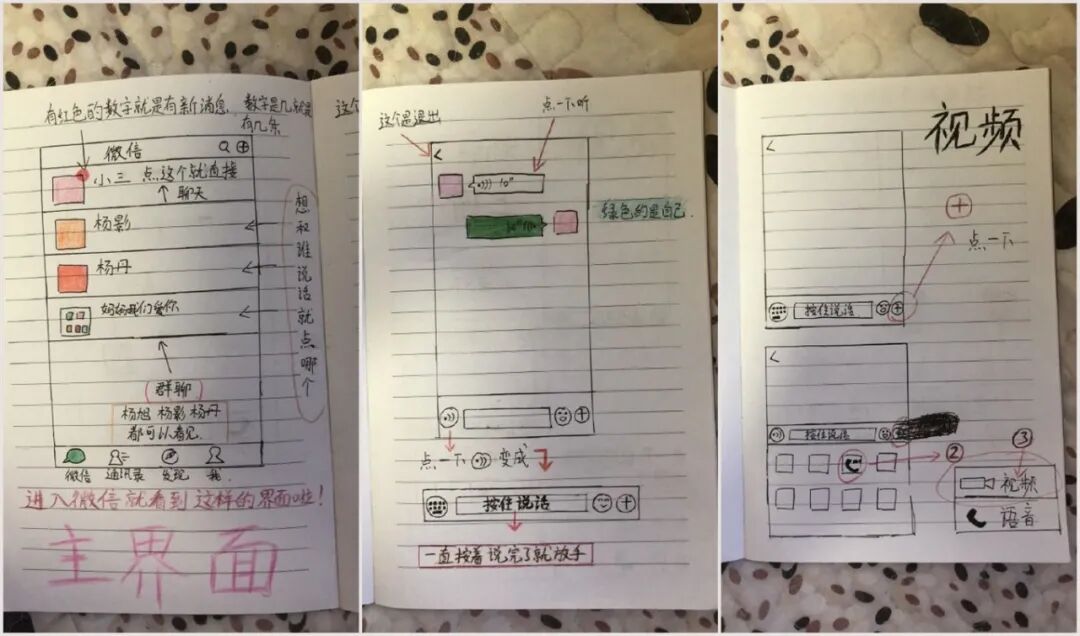 有红色的数字就是有新消息,数字是几就是
有几条
微信
小三 点这个就直接
聊天
杨影
杨丹
妈妈我们爱你
想和谁说话就点哪个
群聊
杨旭 杨影 杨丹
都可以看见.
微信 通讯录 发现 我.
进入微信就看到这样的界面啦!
主界面
这个
这个是退出
点一下听
<
10"
绿色的是自己.
点一下 变成
按住说话
一直按着 说完了就放手
视频
<
点一下
按住说话
<
按住说话
②
③
视频
语音